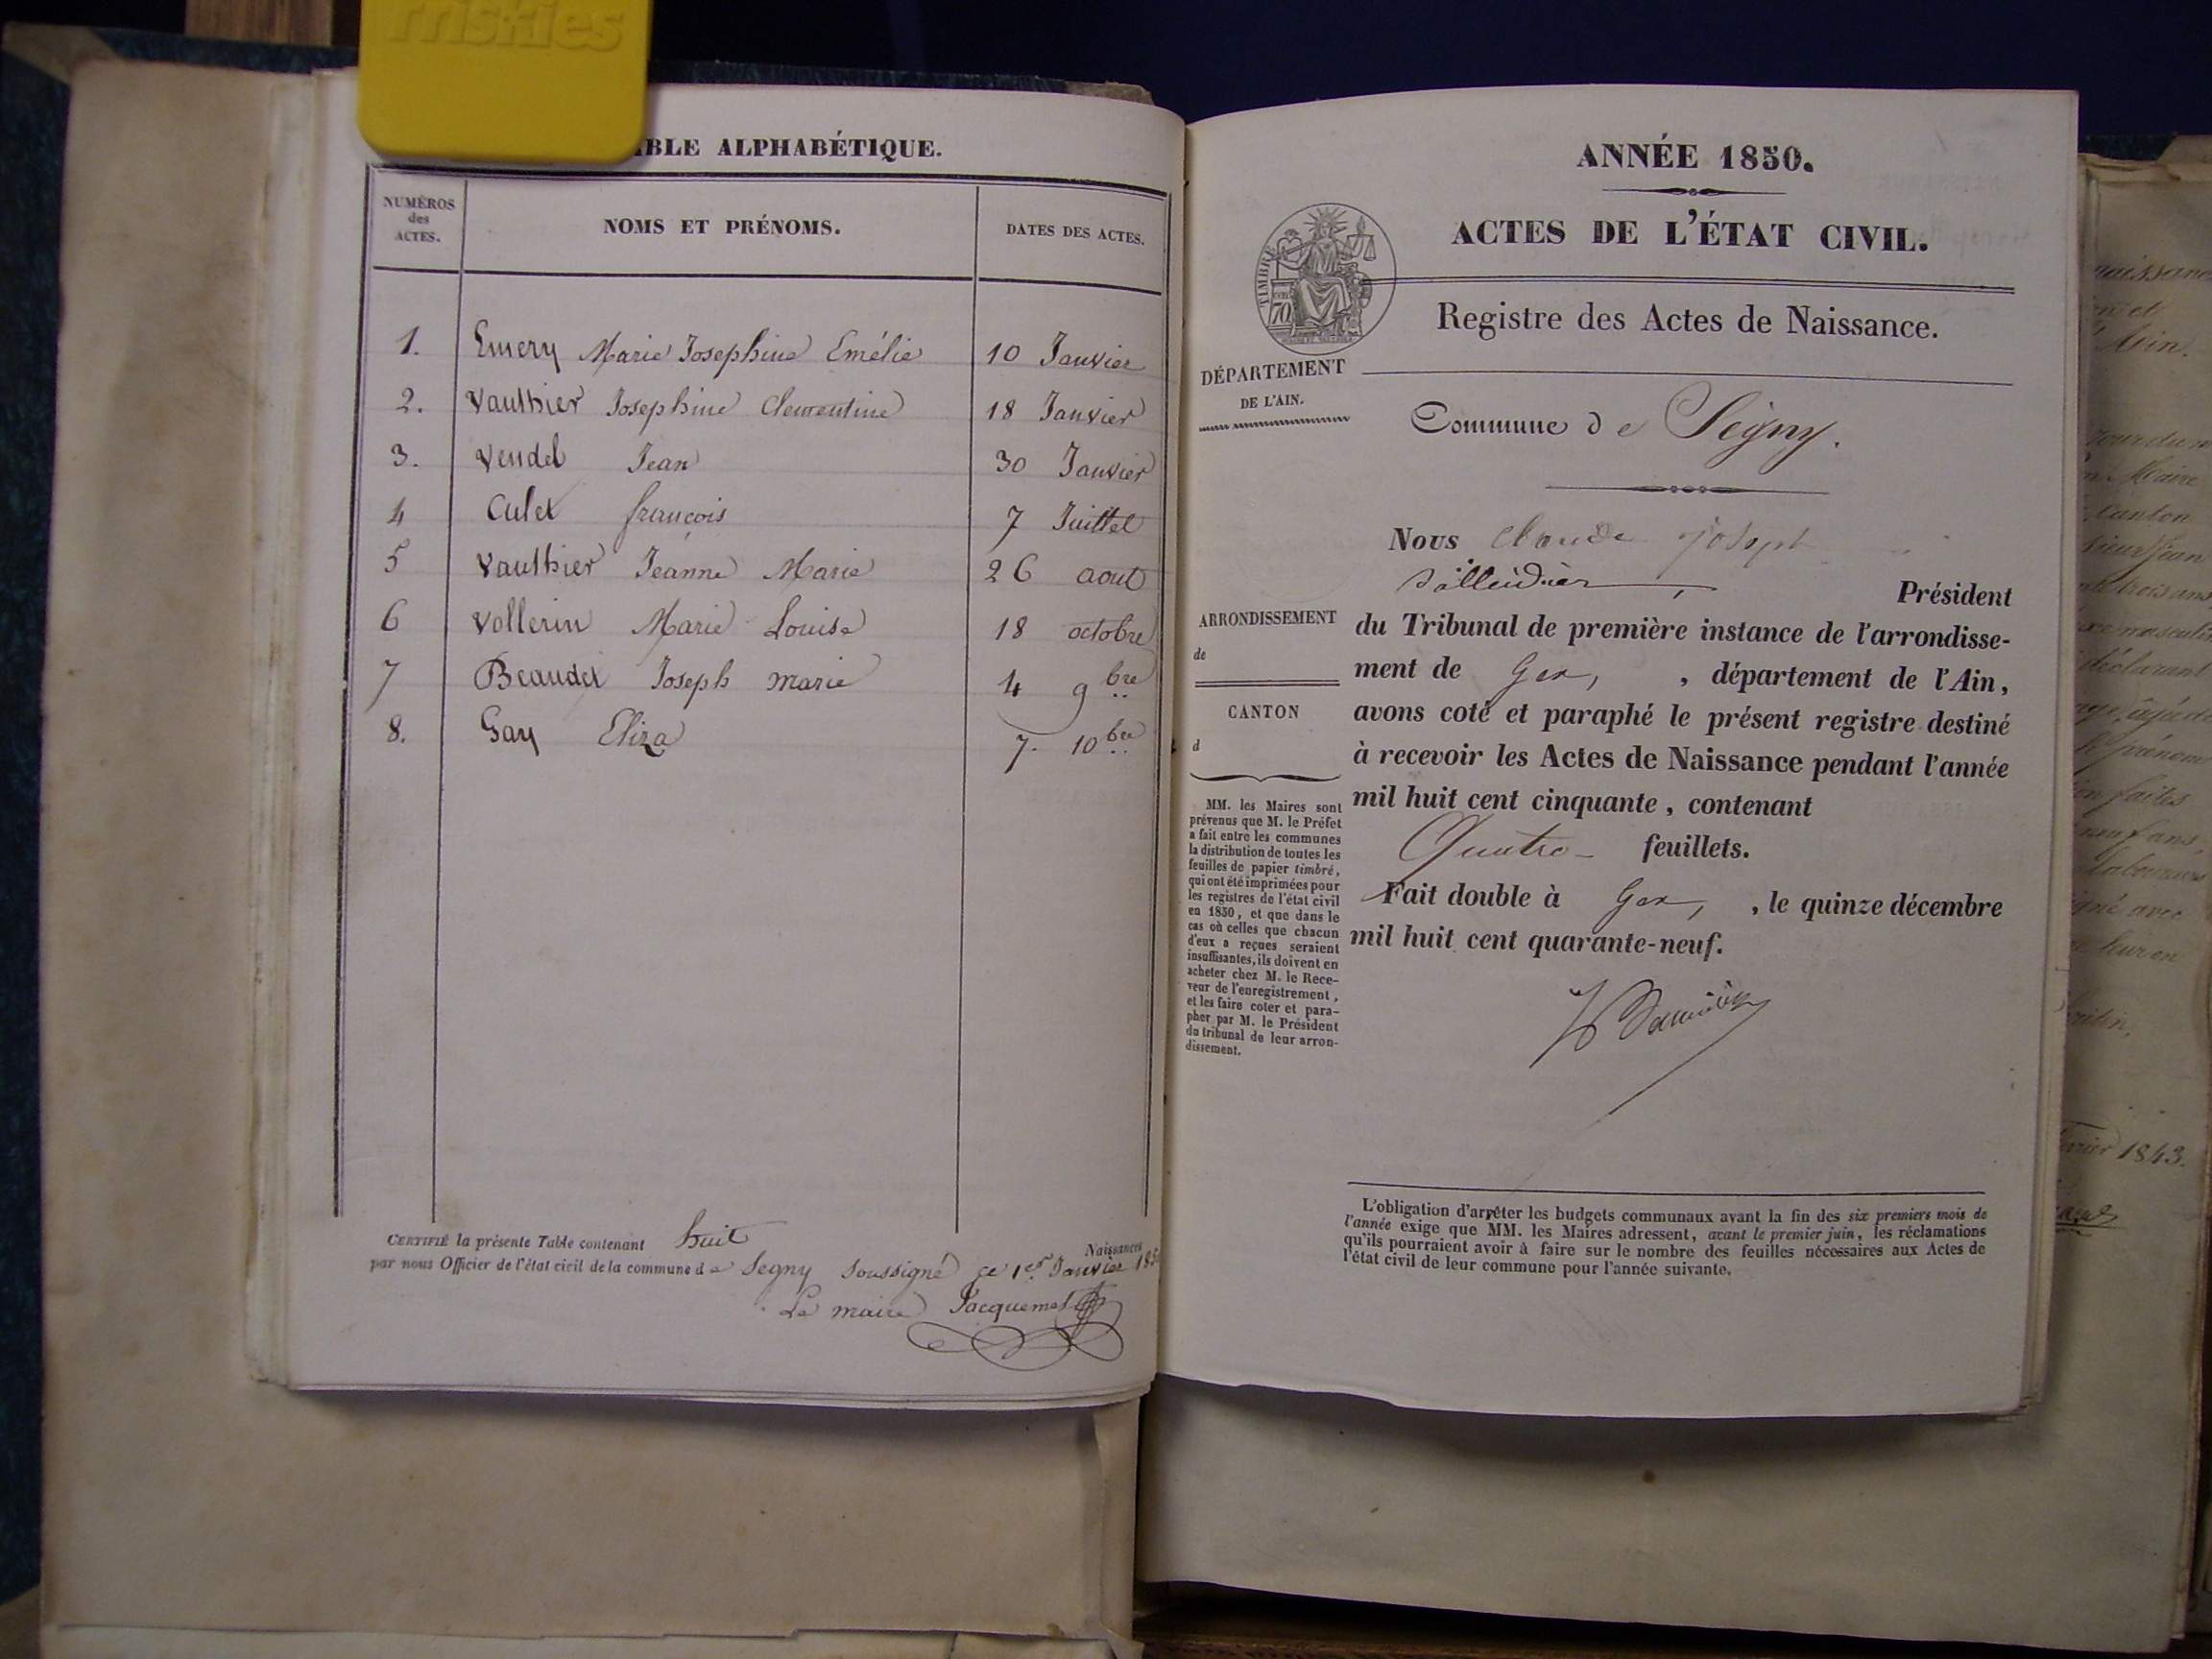 friskies
BLE ALPHABÉTIQUE.
NUMÉROS
des
ACTES.
NOMS ET PRÉNOMS.
DATES DES ACTES.
1. Emery Marie Josephine Emélie 10 Janvier
2. Vauthier Josephine Clementine 18 Janvier
3. Vendel Jean 30 Janvier
4 Culet françois 7 Juillet
5 Vauthier Jeanne Marie 26 aout
6 Vollerin Marie Louise 18 octobre
7 Beaudet Joseph marie 4 9bre
8. Gay Eliza 7. 10bre
CERTIFIÉ la présente Table contenant huit Naissances
par nous Officier de l'état civil de la commune de Segny soussigné ce 1er Janvier 185
Le maire Jacquemet
ANNÉE 1850.
ACTES DE L'ÉTAT CIVIL.
TIMBRE
70
Registre des Actes de Naissance.
DÉPARTEMENT
DE L'AIN.
Commune de Segny.
Nous Claude Joseph
Président
ARRONDISSEMENT
de
CANTON
d
du Tribunal de première instance de l'arrondisse-
ment de Gex, , département de l'Ain,
avons coté et paraphé le présent registre destiné
à recevoir les Actes de Naissance pendant l'année
mil huit cent cinquante, contenant
Quatre feuillets.
Fait double à Gex, , le quinze décembre
mil huit cent quarante-neuf.
MM. les Maires sont
prévenus que M. le Préfet
a fait entre les communes
la distribution de toutes les
feuilles de papier timbré,
qui ont été imprimées pour
les registres de l'état civil
en 1850, et que dans le
cas où celles que chacun
d'eux a reçues seraient
insuffisantes, ils doivent en
acheter chez M. le Rece-
veur de l'enregistrement,
et les faire coter et para-
pher par M. le Président
du tribunal de leur arron-
dissement.
L'obligation d'arrêter les budgets communaux avant la fin des six premiers mois de
l'année exige que MM. les Maires adressent, avant le premier juin, les réclamations
qu'ils pourraient avoir à faire sur le nombre des feuilles nécessaires aux Actes de
l'état civil de leur commune pour l'année suivante.
Maire
Canton
trois ans
masculin
déclarant
prénom
faites
neuf ans,
avec
1843.